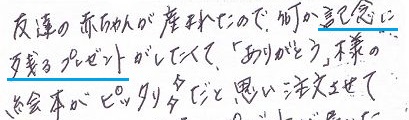 友達の赤ちゃんが産まれたので、何か記念に
残るプレゼントがしたくて、「ありがとう」様の
絵本がピッタリだと思い注文させて